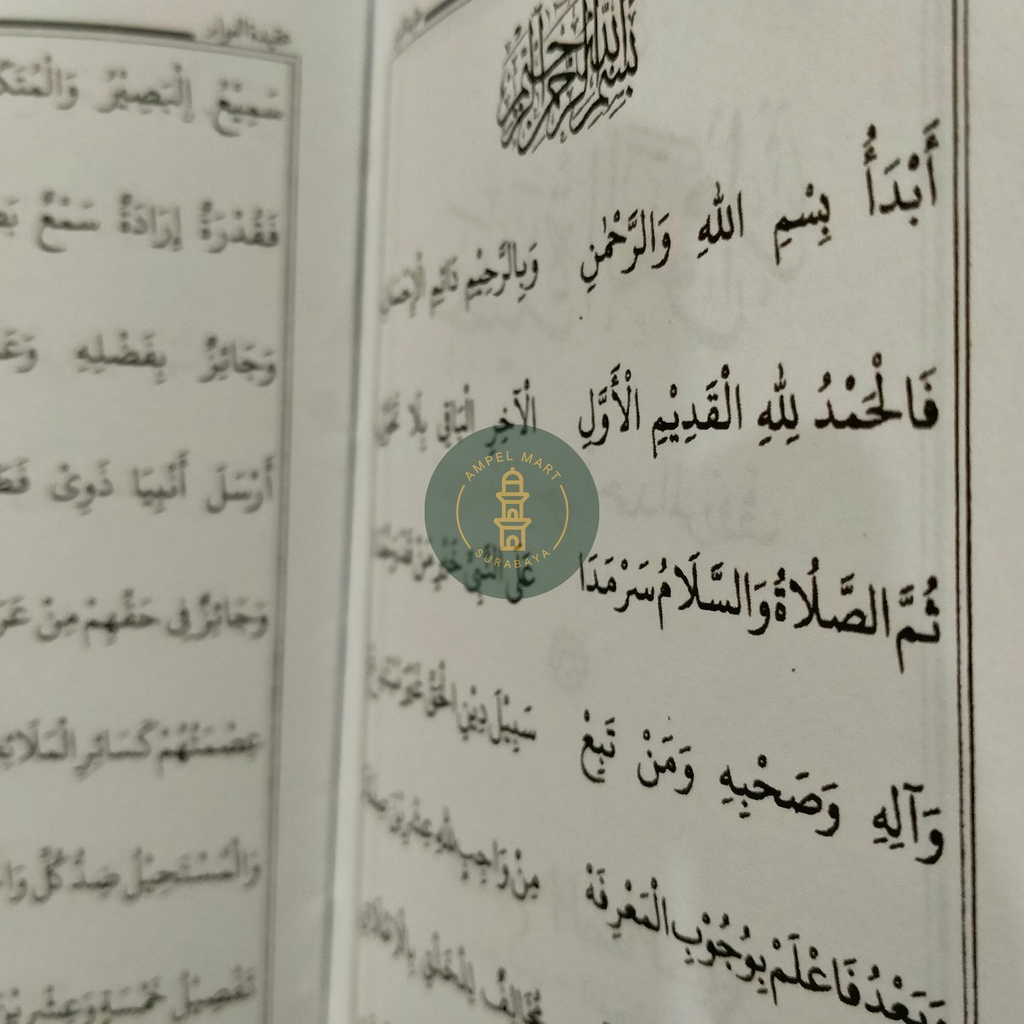 عقيدة العوام
بسم الله الرحمن الرحيم
أَبْدَأُ بِسْمِ اللهِ وَالرَّحْمٰنِ وَبِالرَّحِيْمِ دَائِمِ الْإِحْسَانِ
فَالْحَمْدُ لِلّٰهِ الْقَدِيْمِ الْأَوَّلِ الْآخِرِ الْبَاقِي بِلَا
ثُمَّ الصَّلَاةُ وَالسَّلَامُ سَرْمَدَا عَلَى النَّبِيِّ
وَآلِهِ وَصَحْبِهِ وَمَنْ تَبِعْ سَبِيْلَ دِيْنِ الْحَقِّ غَيْرَ
وَبَعْدُ فَاعْلَمْ بِوُجُوْبِ الْمَعْرِفَهْ مِنْ وَاجِبٍ لِلّٰهِ عِشْرِيْنَ
مُخَالِفٌ لِلْخَلْقِ بِالْإِطْلَاقِ
سَمِيْعُ الْبَصِيْرُ وَالْمُتَكَ
فَقُدْرَةٌ إِرَادَةٌ سَمْعٌ بَصَ
وَجَائِزٌ بِفَضْلِهِ وَعَ
أَرْسَلَ أَنْبِيَا ذَوِيْ فَطَ
وَجَائِزٌ فِي حَقِّهِمْ مِنْ عَرَ
عِصْمَتُهُمْ كَسَائِرِ الْمَلَائِ
وَالْمُسْتَحِيْلُ ضِدُّ كُلِّ وَا
تَفْصِيْلُ خَمْسَةٍ وَعِشْرِيْنَ
AMPEL MART
SURABAYA